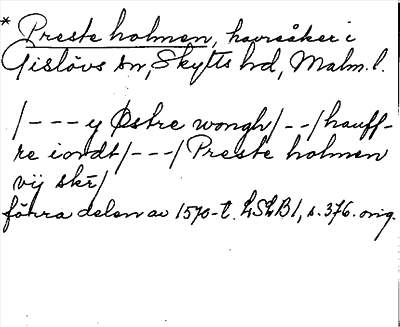 * Preste holmen, havreåker i
Gislövs sn, Skytts hd, Malm. l.
/- - - y Østre wongh/ - -/ hauff-
re iordt/- - -/ Preste holmen
vij skr̄/
förra delen av 1570-t. LSLB 1, s. 376. orig.